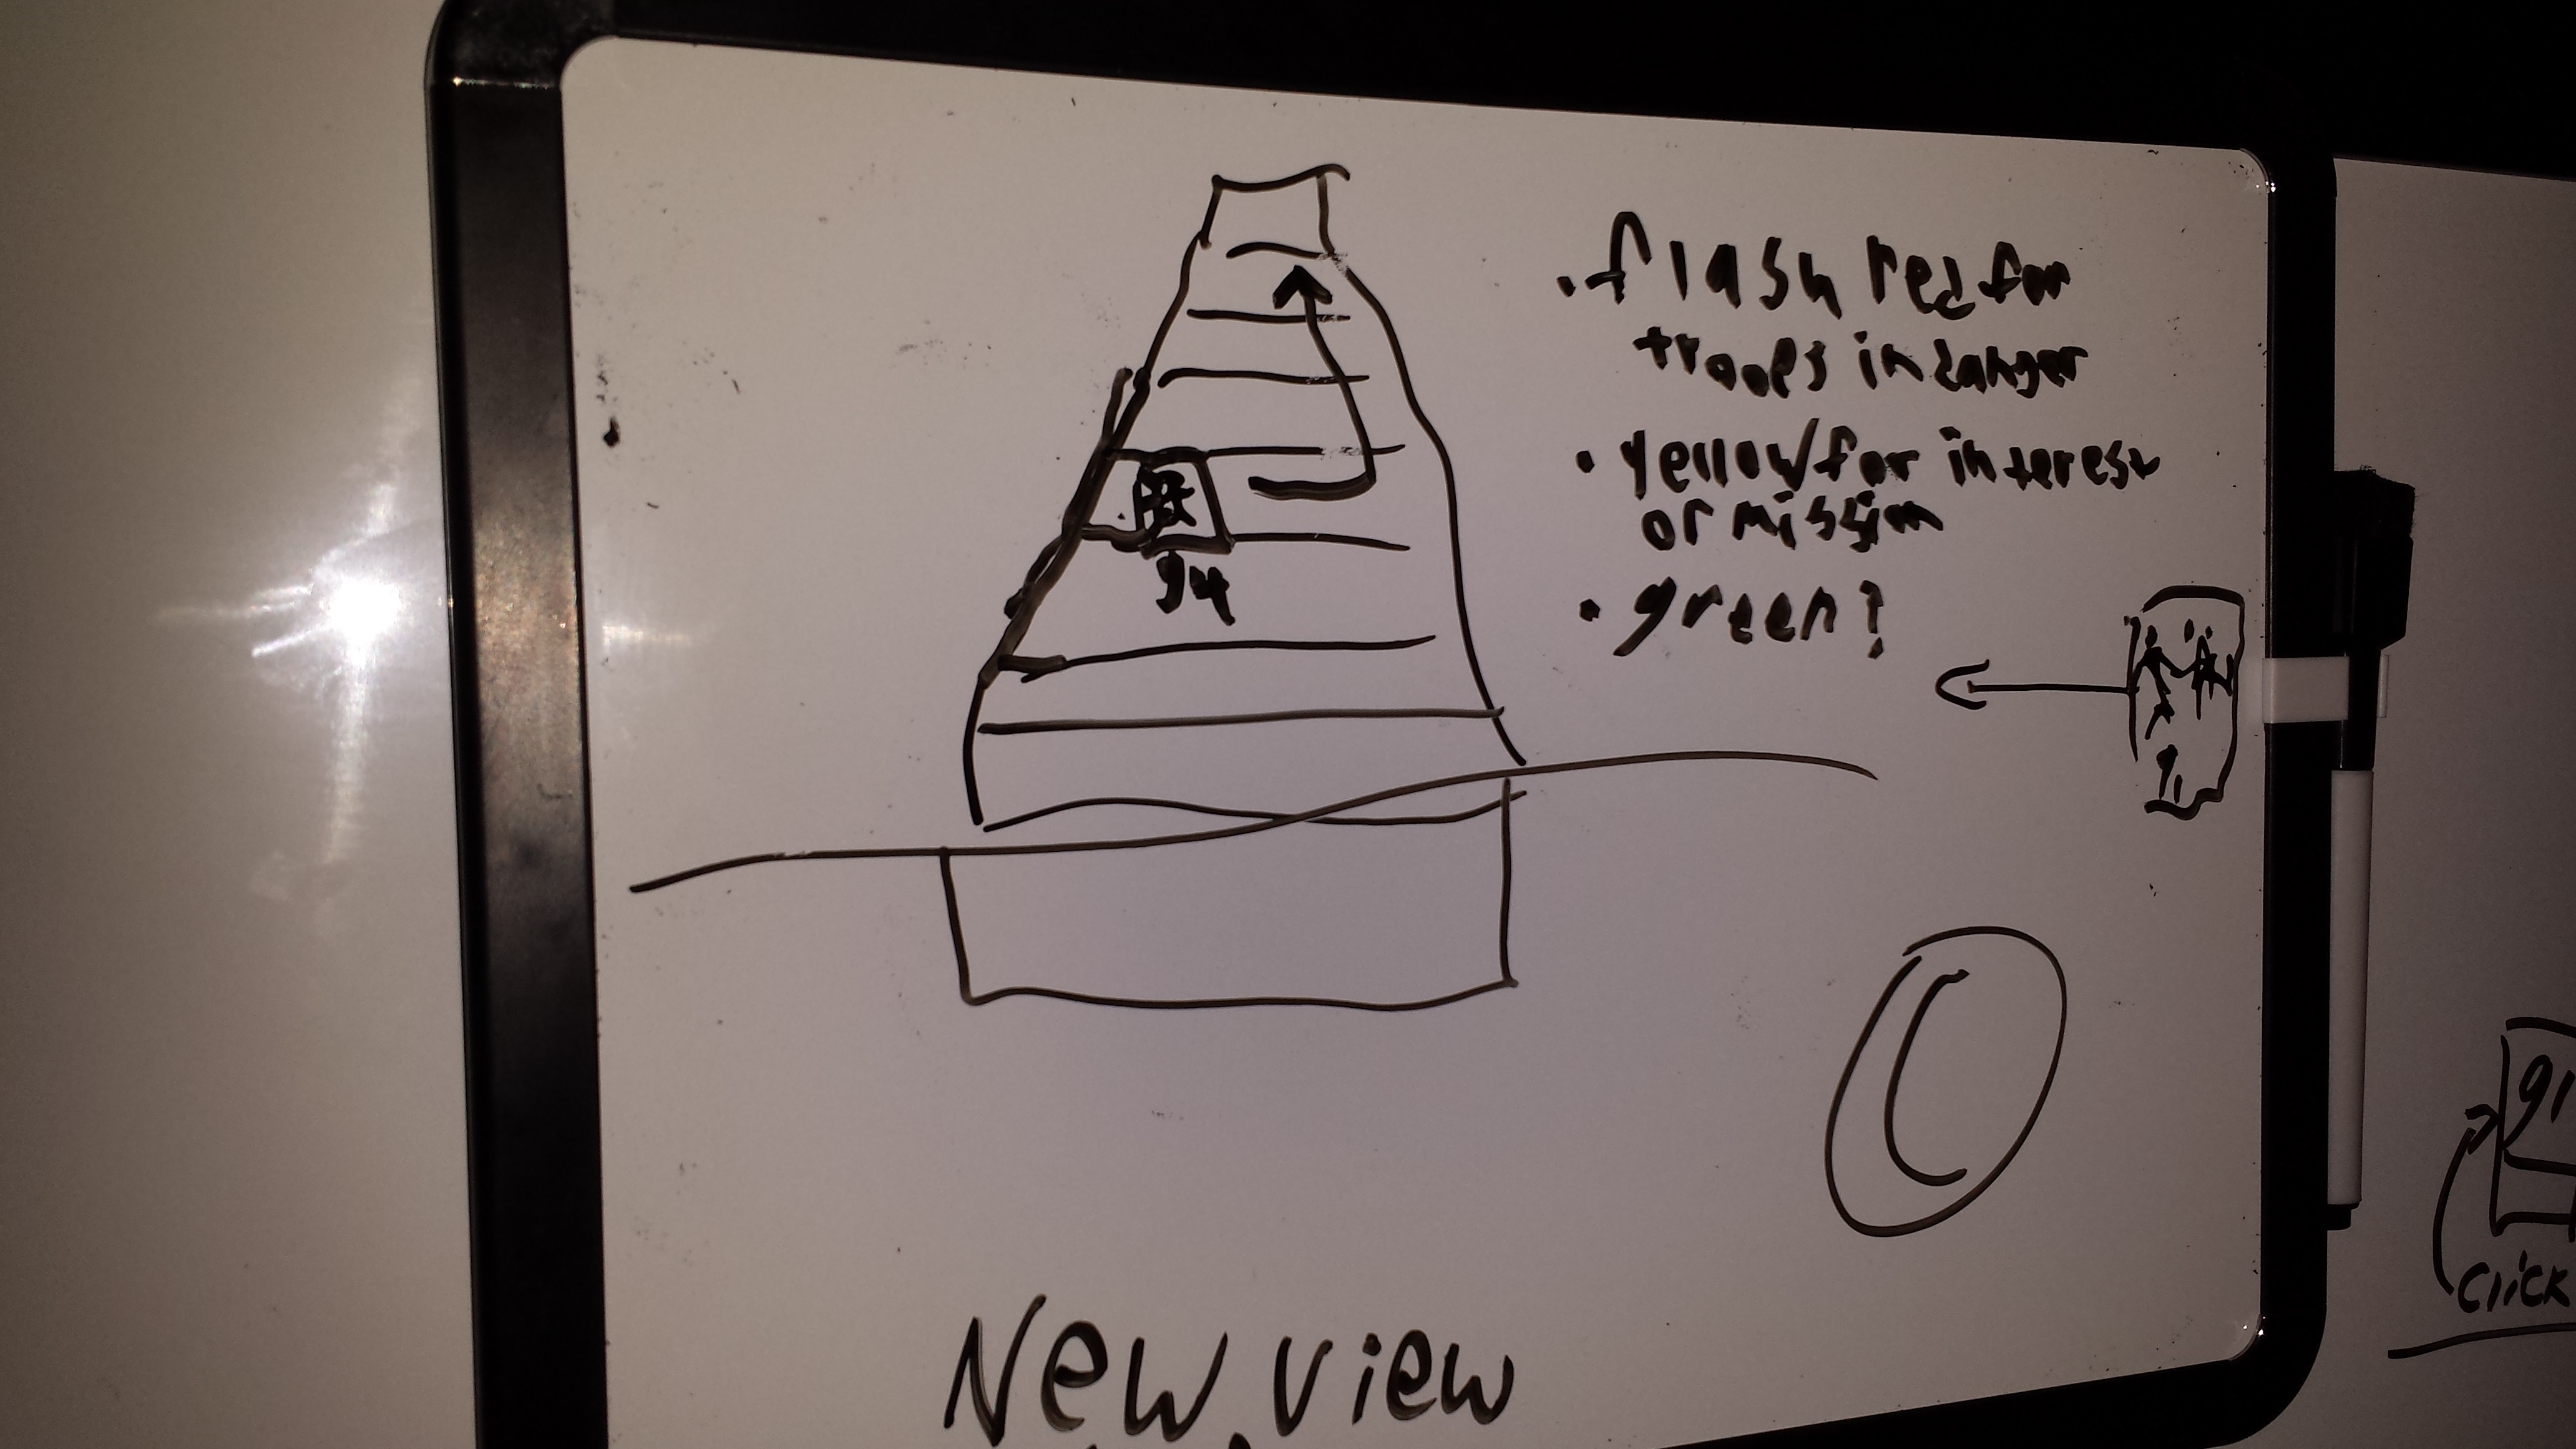 • flash red for
troops in danger
• yellow for interest
or mission
• green?
94
New view
Click